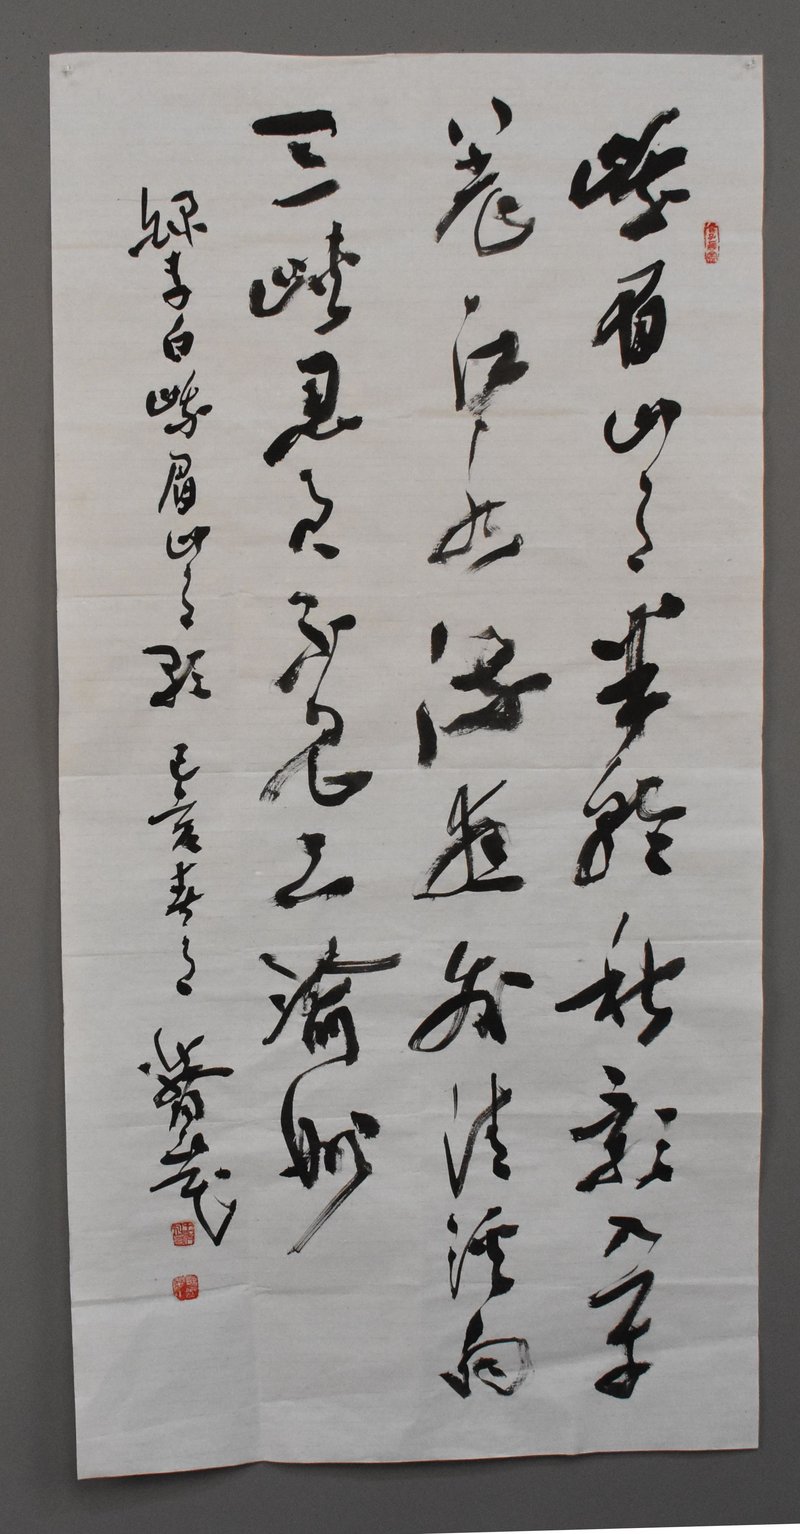 峨眉山月半輪秋影入平
羌江水流夜發清溪向
三峽思君不見下渝州
錄李白峨眉山月歌 己亥春月